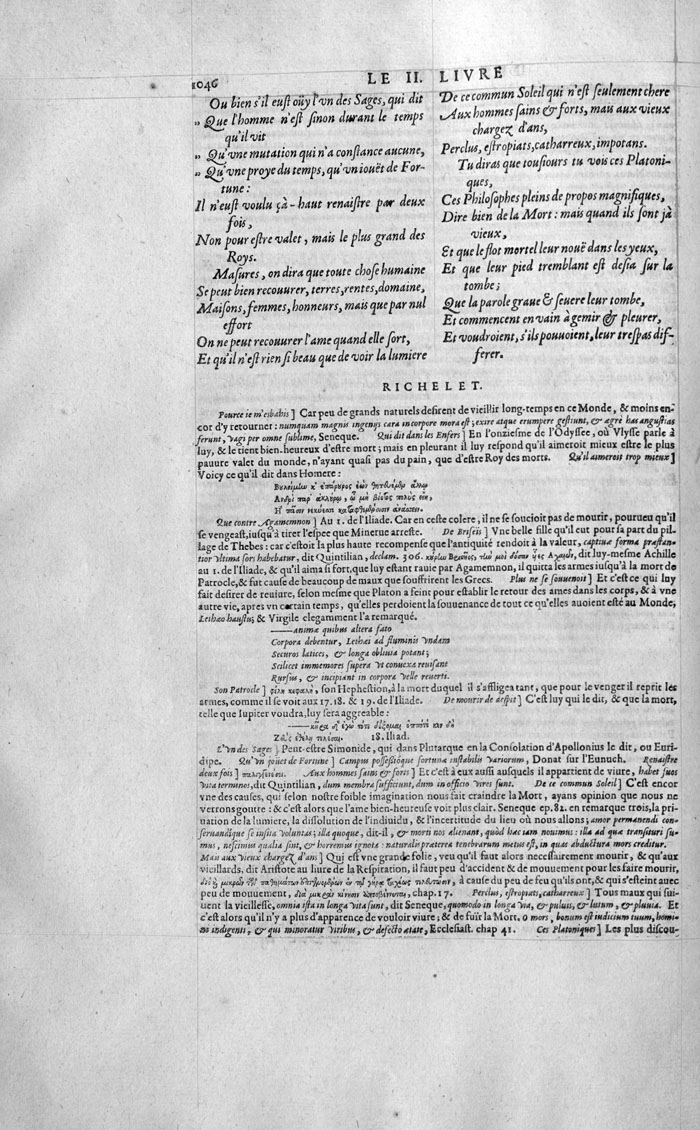 1046
LE II. LIVRE
Ou bien s'il eust oüy l'vn des Sages, qui dit
„ Que l'homme n'est sinon durant le temps
qu'il vit
„ Qu'vne mutation qui n'a constance aucune,
„ Qu'vne proye du temps, qu'vn ioüet de For-
tune:
Il n'eust voulu çà-haut renaistre par deux
fois,
Non pour estre valet, mais le plus grand des
Roys.
Masures, on dira que toute chose humaine
Se peut bien recouurer, terres, rentes, domaine,
Maisons, femmes, honneurs, mais que par nul
effort
On ne peut recouurer l'ame quand elle sort,
Et qu'il n'est rien si beau que de voir la lumiere
De ce commun Soleil qui n'est seulement chere
Aux hommes sains & forts, mais aux vieux
chargez d'ans,
Perclus, estropiats, catharreux, impotans.
Tu diras que tousiours tu vois ces Platoni-
ques,
Ces Philosophes pleins de propos magnifiques,
Dire bien de la Mort: mais quand ils sont jà
vieux,
Et que le flot mortel leur nouë dans les yeux,
Et que leur pied tremblant est desia sur la
tombe;
Que la parole graue & seuere leur tombe,
Et commencent en vain à gemir & pleurer,
Et voudroient, s'ils pouuoient, leur trespas dif-
ferer.
RICHELET.
Pource ie m'esbahis] Car peu de grands naturels desirent de vieillir long-temps en ce Monde, & moins en-
cor d'y retourner: numquam magnis ingenijs cara incorpore mora est; exire atque erumpere gestiunt, & ægrè has angustias
ferunt, vagi per omne sublime, Seneque. Qui dit dans les Enfers] En l'onziesme de l'Odyssée, où Vlysse parle à
luy, & le tient bien-heureux d'estre mort; mais en pleurant il luy respond qu'il aimeroit mieux estre le plus
pauure valet du monde, n'ayant quasi pas du pain, que d'estre Roy des morts. Qu'il aimeroit trop mieux]
Voicy ce qu'il dit dans Homere:
Que contre Agamemnon] Au 1. de l'Iliade. Car en ceste colere, il ne se soucioit pas de mourir, pourueu qu'il
se vengeast, iusqu'à tirer l'espee que Minerue arreste. De Briseis] Vne belle fille qu'il eut pour sa part du pil-
lage de Thebes: car c'estoit la plus haute recompense que l'antiquité rendoit à la valeur, captiua forma præstan-
tior vltima sors habebatur, dit Quintilian, declam. 306. dit luy-mesme Achille
au 1. de l'Iliade, & qu'il aima si fort, que luy estant rauie par Agamemnon, il quitta les armes iusqu'à la mort de
Patrocle, & fut cause de beaucoup de maux que souffrirent les Grecs. Plus ne se souuenoit] Et c'est ce qui luy
fait desirer de reuiure, selon mesme que Platon a feint pour establir le retour des ames dans les corps, & à vne
autre vie, apres vn certain temps, qu'elles perdoient la souuenance de tout ce qu'elles auoient esté au Monde,
Lethæo haustu; & Virgile elegamment l'a remarqué.
——animæ quibus altera fato
Corpora debentur, Lethæi ad fluminis vndam
Securos latices, & longa obliuia potant;
Scilicet immemores supera vt conuexa reuisant
Rursus, & incipiant in corpora velle reuerti.
Son Patrocle] son Hephestion, à la mort duquel il s'affligea tant, que pour le venger il reprit les
armes, comme il se voit aux 17. 18. & 19. de l'Iliade. De mourir de despit] C'est luy qui le dit, & que la mort,
telle que Iupiter voudra, luy sera aggreable:
18. Iliad.
L'vn des Sages] Peut-estre Simonide, qui dans Plutarque en la Consolation d'Apollonius le dit, ou Euri-
dipe. Qu'vn jouet de Fortune] Campus possessióque fortunæ instabilis variorum, Donat sur l'Eunuch. Renaistre
deux fois] Aux hommes sains & forts] Et c'est à eux aussi ausquels il appartient de viure, habet suos
vita terminos, dit Quintilian, dum membra sufficiunt, dum in officio vires sunt. De ce commun Soleil] C'est encor
vne des causes, qui selon nostre foible imagination nous fait craindre la Mort, ayans opinion que nous ne
verrons goutte: & c'est alors que l'ame bien-heureuse voit plus clair. Seneque ep. 82. en remarque trois, la pri-
uation de la lumiere, la dissolution de l'indiuidu, & l'incertitude du lieu où nous allons; amor permanendi con-
seruandique se insita voluntas; illa quoque, dit-il, & morti nos alienant, quòd hæc iam nouimus: illa ad quæ transituri su-
mus, nescimus qualia sint, & horremus ignota: naturalis præterea tenebrarum metus est, in quas abductura mors creditur.
Mais aux vieux chargez d'ans] Qui est vne grande folie, veu qu'il faut alors necessairement mourir, & qu'aux
vieillards, dit Aristote au liure de la Respiration, il faut peu d'accident & de mouuement pour les faire mourir,
à cause du peu de feu qu'ils ont, & qui s'esteint auec
peu de mouuement, chap. 17. Perclus, estropiats, catharreux] Tous maux qui sui-
uent la vieillesse, omnia ista in longa vita sunt, dit Seneque, quomodo in longa via, & puluis, & lutum, & pluuia. Et
c'est alors qu'il n'y a plus d'apparence de vouloir viure; & de fuïr la Mort. O mors, bonum est iudicium tuum, homi-
no indigenti, & qui minoratur viribus, & defecto ætate, Ecclesiast. chap 41. Ces Platoniques] Les plus discou-